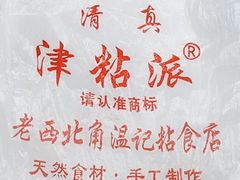 清真
津粘派®
请认准商标
老西北角温记粘食店
天然食材·手工制作